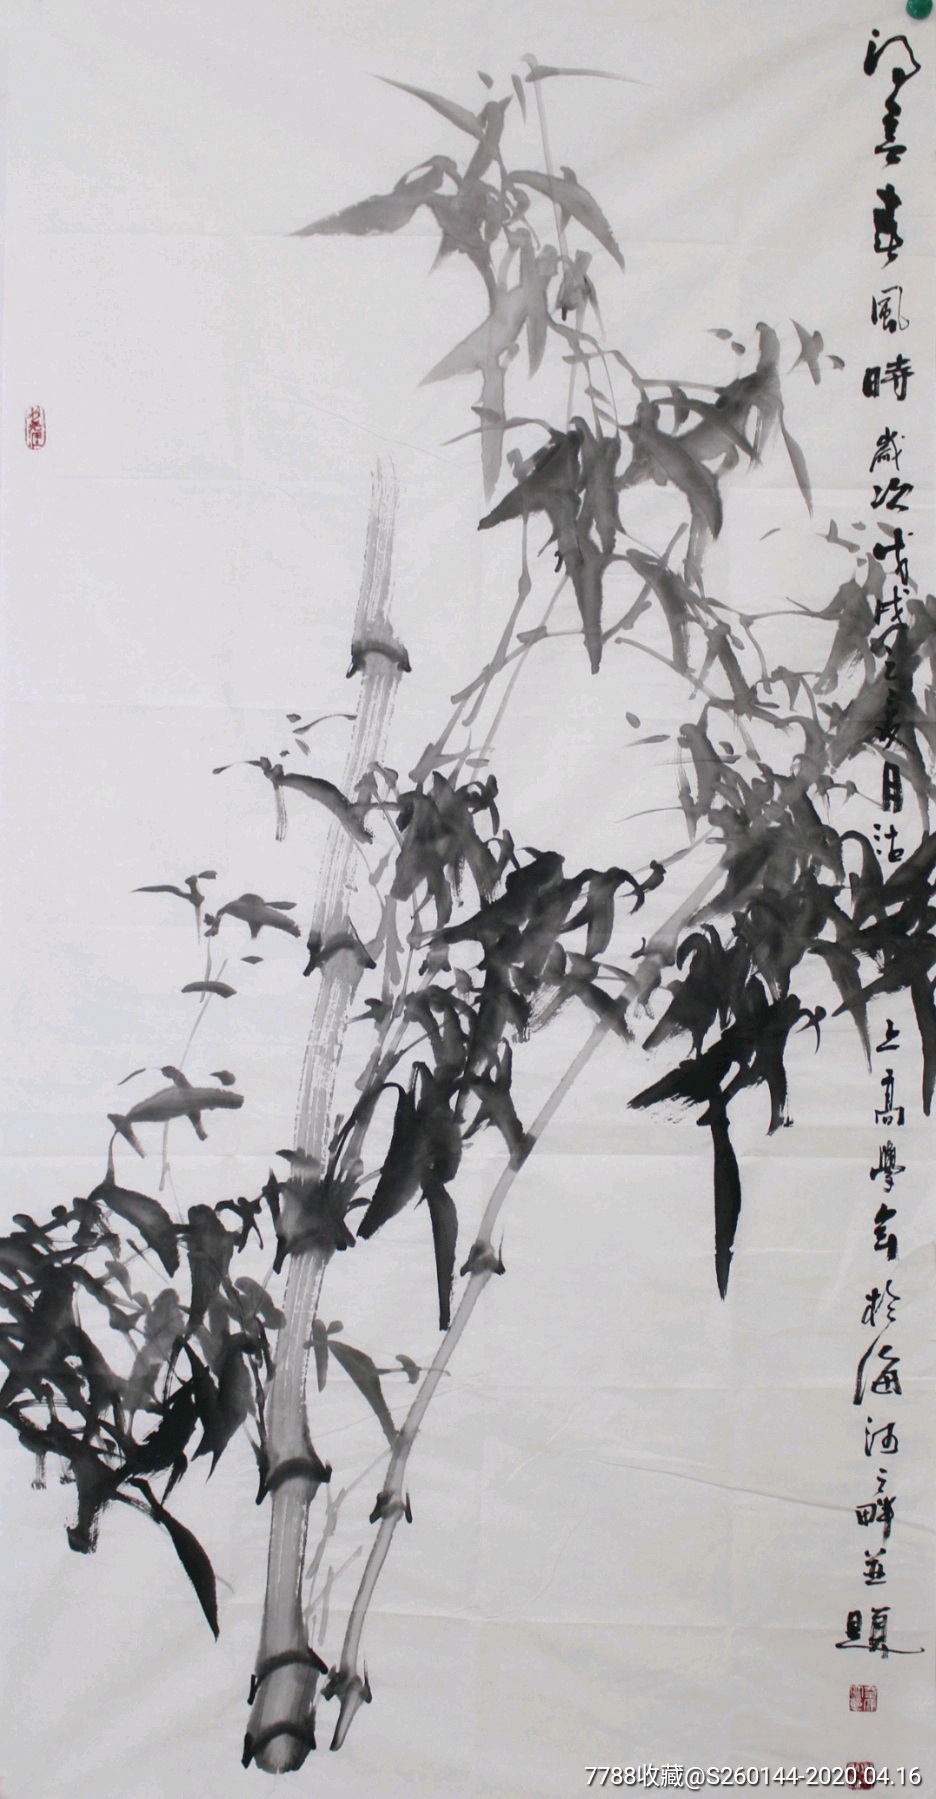 得意春風時 歲次戊戌之夏月沽上高學言於海河之畔並題
7788收藏@S260144-2020.04.16